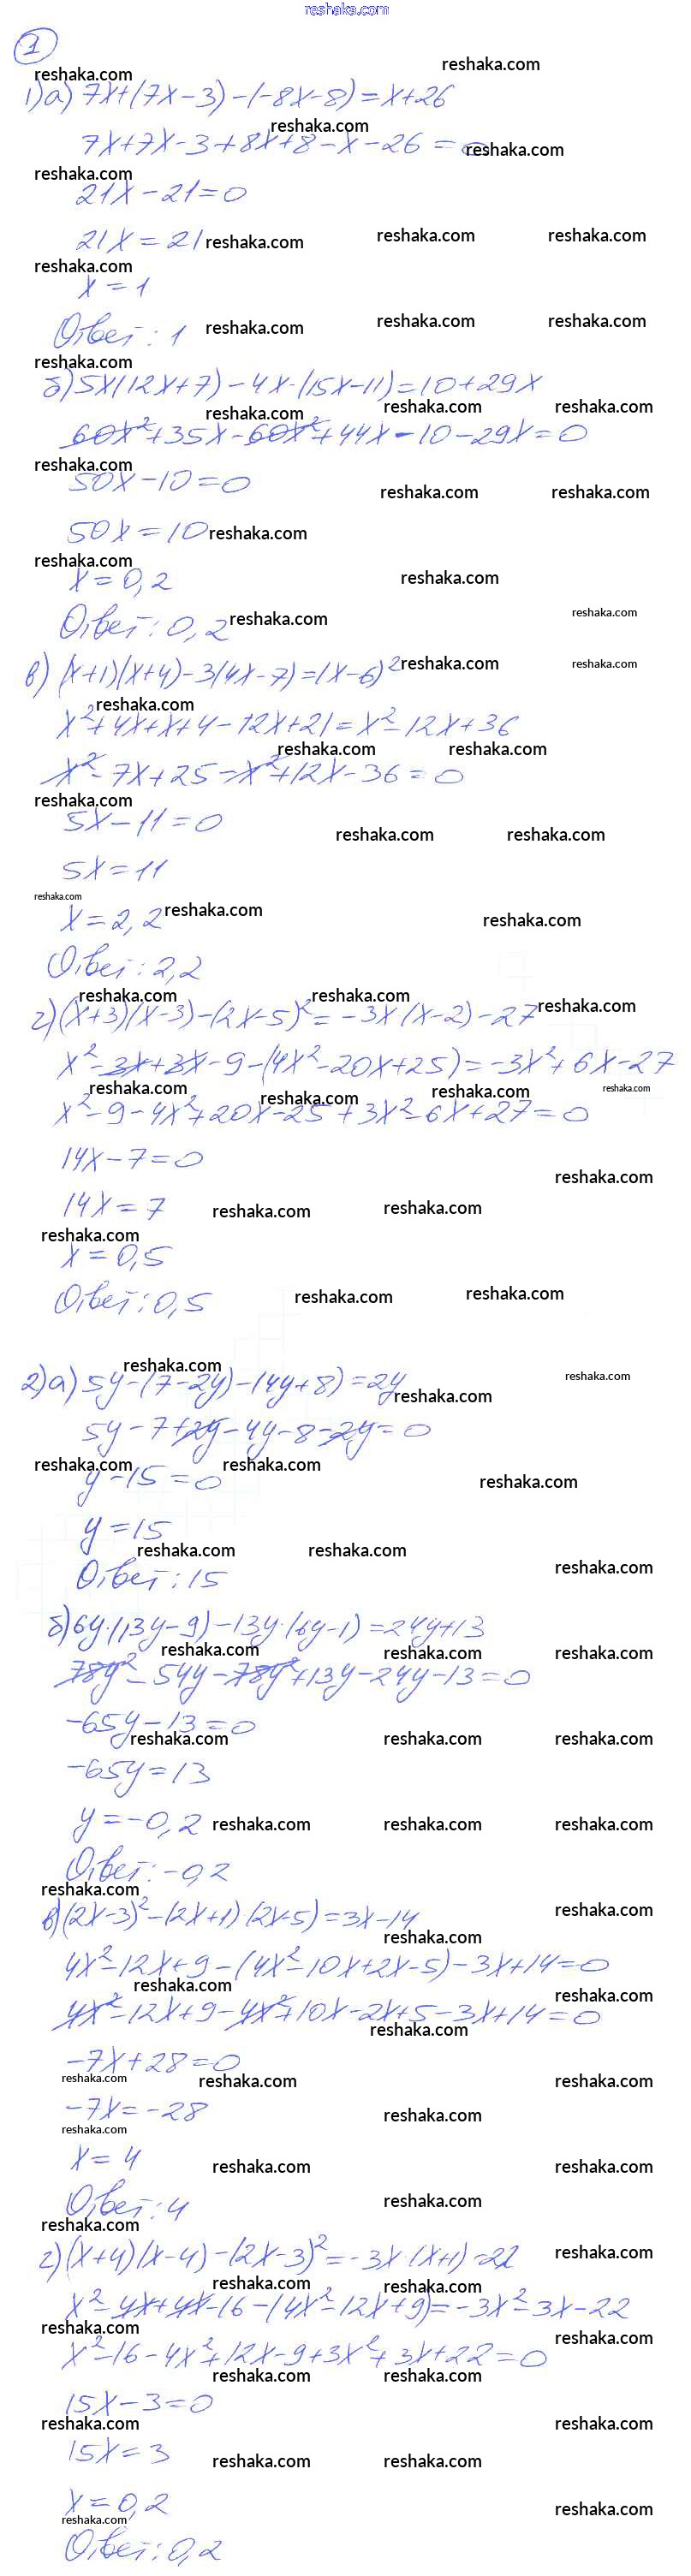 reshaka.com
1
reshaka.com
reshaka.com
1) а) 7x+(7x-3)-(-8x-8)=x+26
reshaka.com
7x+7x-3+8x+8-x-26=0
reshaka.com
reshaka.com
21x-21=0
21x=21 reshaka.com reshaka.com reshaka.com
reshaka.com
x=1
Ответ: 1 reshaka.com reshaka.com reshaka.com
reshaka.com
б) 5x(12x+7)-4x·(15x-11)=10+29x
reshaka.com reshaka.com reshaka.com
60x²+35x-60x²+44x-10-29x=0
reshaka.com
50x-10=0
reshaka.com reshaka.com
50x=10 reshaka.com
reshaka.com
x=0,2 reshaka.com
Ответ: 0,2 reshaka.com reshaka.com
в) (x+1)(x+4)-3(4x-7)=(x-6)² reshaka.com reshaka.com
reshaka.com
x²+4x+x+4-12x+21=x²-12x+36
reshaka.com reshaka.com
x²-7x+25-x²+12x-36=0
reshaka.com
5x-11=0
reshaka.com reshaka.com
5x=11
reshaka.com
x=2,2 reshaka.com reshaka.com
Ответ: 2,2
reshaka.com reshaka.com reshaka.com
г) (x+3)(x-3)-(2x-5)²=-3x(x-2)-27
x²-3x+3x-9-(4x²-20x+25)=-3x²+6x-27
reshaka.com reshaka.com reshaka.com reshaka.com
x²-9-4x²+20x-25+3x²-6x+27=0
14x-7=0
reshaka.com
14x=7 reshaka.com reshaka.com
reshaka.com
x=0,5
Ответ: 0,5 reshaka.com reshaka.com
reshaka.com reshaka.com
2) а) 5y-(7-2y)-(4y+8)=2y
reshaka.com
5y-7+2y-4y-8-2y=0
reshaka.com reshaka.com
y-15=0 reshaka.com
y=15
reshaka.com reshaka.com
Ответ: 15 reshaka.com
б) 6y·(13y-9)-13y·(6y-1)=24y+13
reshaka.com reshaka.com reshaka.com
78y²-54y-78y²+13y-24y-13=0
-65y-13=0
reshaka.com reshaka.com reshaka.com
-65y=13
y=-0,2 reshaka.com reshaka.com reshaka.com
Ответ: -0,2
reshaka.com
в) (2x-3)²-(2x+1)·(2x-5)=3x-14 reshaka.com
reshaka.com
4x²-12x+9-(4x²-10x+2x-5)-3x+14=0
reshaka.com reshaka.com
4x²-12x+9-4x²+10x-2x+5-3x+14=0
reshaka.com
-7x+28=0
reshaka.com reshaka.com reshaka.com
-7x=-28 reshaka.com
reshaka.com
x=4 reshaka.com reshaka.com
Ответ: 4 reshaka.com
reshaka.com
г) (x+4)(x-4)-(2x-3)²=-3x·(x+1)-22 reshaka.com
reshaka.com reshaka.com
x²-4x+4x-16-(4x²-12x+9)=-3x²-3x-22
reshaka.com reshaka.com
x²-16-4x²+12x-9+3x²+3x+22=0
reshaka.com reshaka.com
15x-3=0
reshaka.com reshaka.com
15x=3 reshaka.com reshaka.com
x=0,2 reshaka.com
reshaka.com
Ответ: 0,2